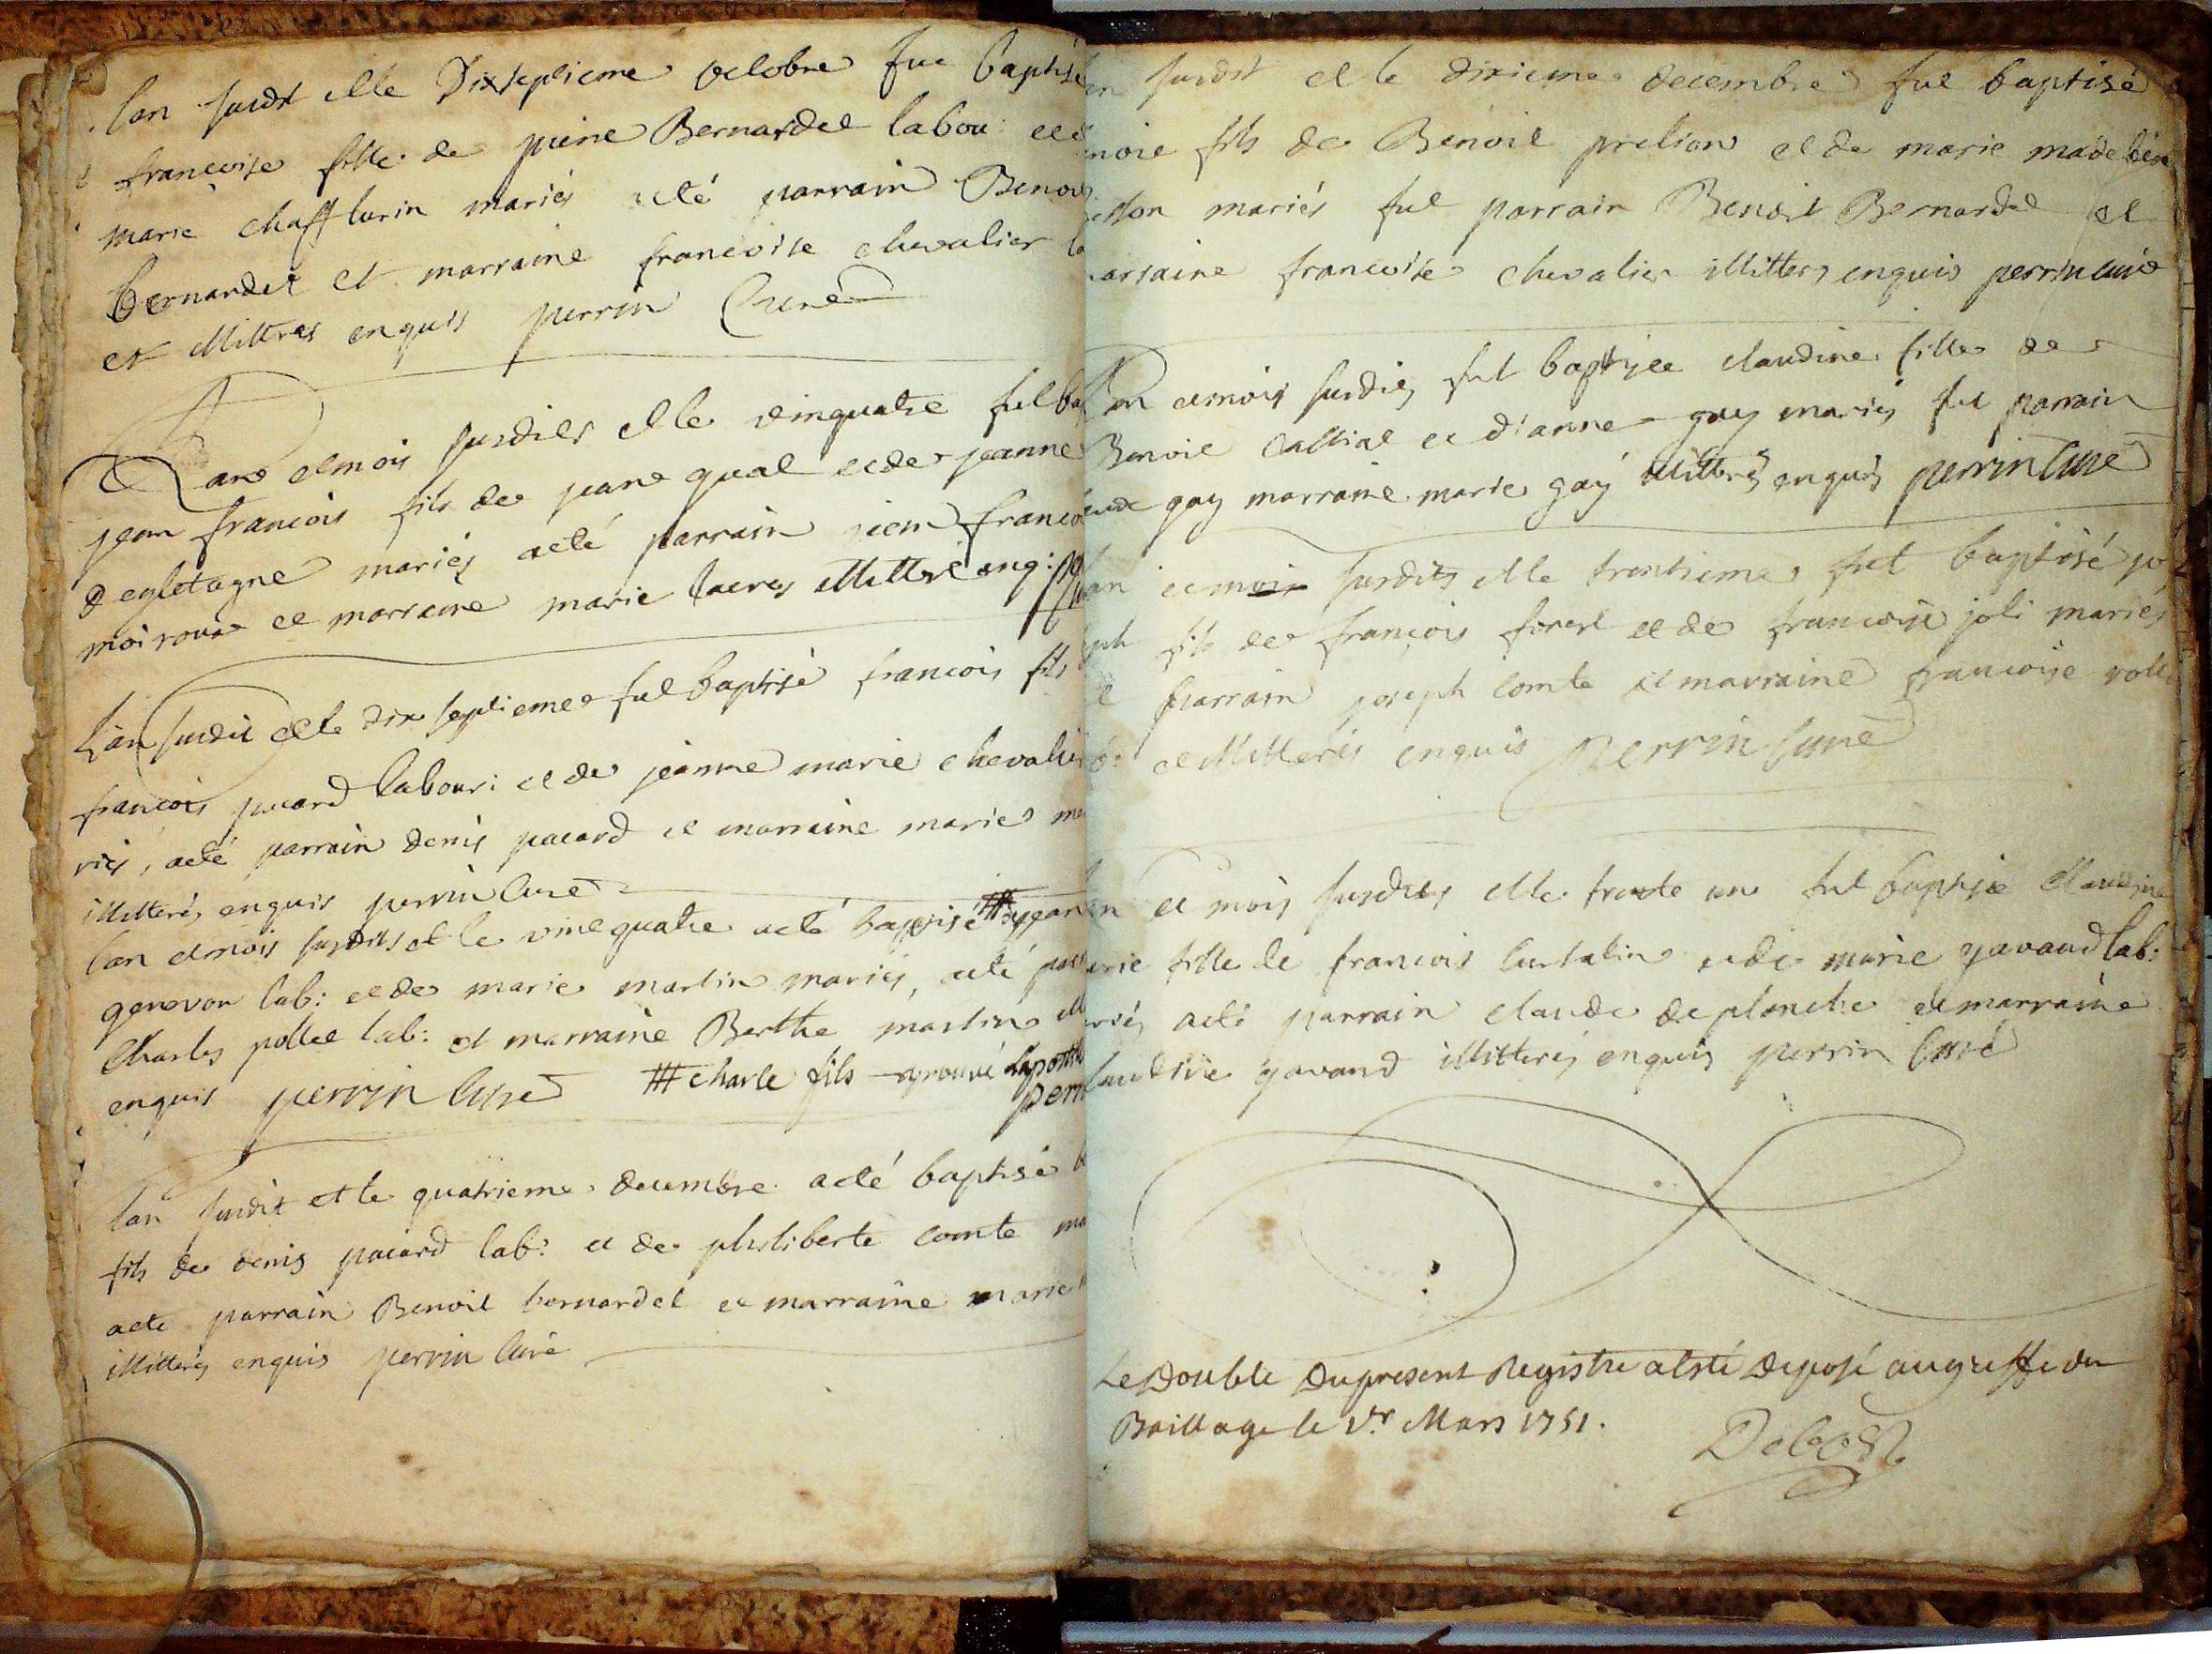 lan susdit et le Dixseptieme octobre fut baptisé
francoise fille de piere Bernardet labou: et d
marie chafflurin mariés acté parrain Benoi
bernardet et marraine francoise chevalier
et illittres enquis perrin Curé
lan et mois susdits et le vinquatre fut ba
jean francois fils de jeane qual et de jeanne
degletagne mariés acté parrain jean franco
moiroux et marraine marie illittré enq:
L'an susdit et le dix septieme fut baptisé francois fils
francois pacard labour: et de jeanne marie chevalie
riés, acté parrain denis pacard et marraine marie
illitterés enquis perrin Curé
lan et mois susdits et le vint quatre acté baptisé # jean
genevon lab: et de marie martin mariés, acté parr
Charles pollet lab: et marraine Berthe martin ill
enquis perrin Curé # charle fils aprouvé
perri
lan susdit et le quatrieme decembre acté baptisé
fils de denis pacard lab: et de philiberte comte ma
acté parrain Benoit bernardet et marraine marie
illitterés enquis perrin Curé
an susdit et le dixieme decembre fut baptisé
noit fils de Benoit prelion et de marie madelein
mariés fut parrain Benoit Bernardet et
marraine francoise chevalier illitters enquis perrin curé
lan et mois susdits fut baptisee claudine fille de
Benoit Callial et d'anne gay mariés fut parrain
aude gay marraine marie gay illitterés enquis perrin Curé
lan et mois susdits et le trentieme fut baptisé jo
seph fils de françois forest et de francoise joli mariés
parrain joseph comte et marraine francoise roll
et illitterés enquis Perrin Curé
an et mois susdits et le trente un fut baptisée Claudine
marie fille de francois Curtatin et de marie gavaud lab:
mariés acté parrain claude deplanche et marraine
claudine gavand illitterés enquis perrin Curé
Le Double Dupresent Registre a esté Deposé au greffe du
Baillage le 1er. Mars 1751.